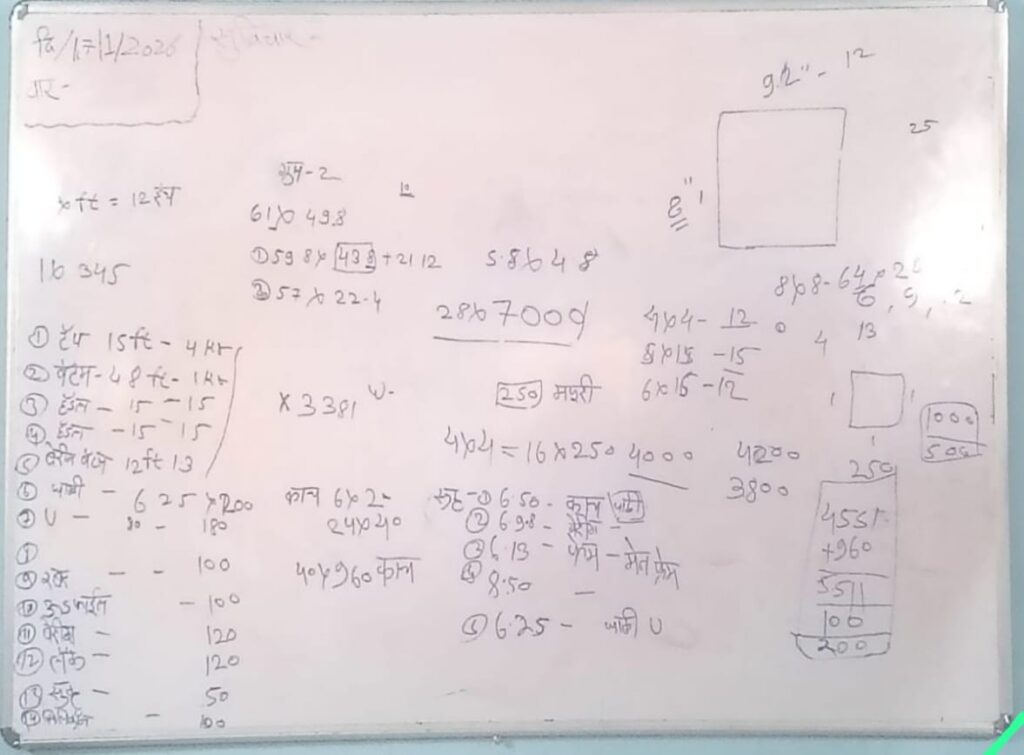 दि/17/1/2026
सुविचार -
वार -
9.2" - 12
25
8" 1
x ft = 12 इंच
सुत्र - 2
10
61 x 498
① 59 8 x 43 8 + 21 12
5.8 x 4 8
1 x 345
② 57 x 22.4
8 x 8 - 64 x 2
28 x 7000
4 x 4 - 12 0 4 13
5 x 15 - 15
6 x 15 - 12
① टॅप 15 ft - 4
② बॅटम - 48 ft -
③ हॅडल - 15 - 15
④ हॅडल - 15 - 15
⑤ 12 ft 13
x 3381 W -
250 मजुरी
1 1
1
1000
500
4 x 4 = 16 x 250 4000
4200
3800
250
⑥ जाळी - 6 25 x 200
काच 6 x 2 -
24 x 40
40 x 960 काच
⑦ U - 30 - 180
- - 100
- 100
⑪ बेरींग - 120
⑫ लॉक - 120
⑬ स्क्रु - 50
- 100
स्क्रु - ① 6.50 - काच जाळी
② 6 98 - बेरींग -
③ 6.13 - फ्रेम - मेन फ्रेम
④ 8.50 -
⑤ 6.25 - जाळी U
4551
+960
5511
100
200